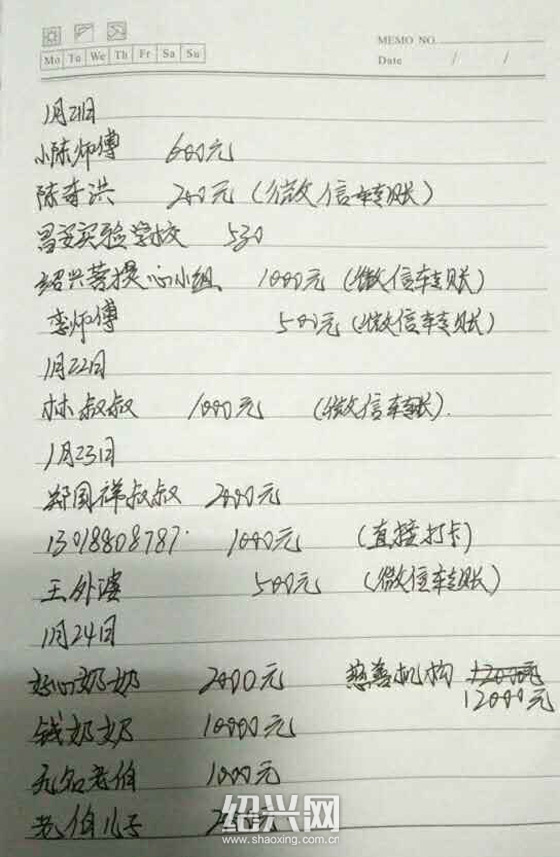 MEMO NO.
Mo Tu We Th Fr Sa Su
Date / /
1月21日
小陈师傅 600元
陈奇洪 200元（微信转账）
昌安实验学校 530
绍兴菩提心小组 1000元（微信转账）
李师傅 500元（微信转账）
1月22日
林叔叔 1000元 （微信转账）.
1月23日
郑国祥叔叔 2000元
13018808787. 1000元 （直接打卡）
王外婆 500元 （微信转账）
1月24日
好心奶奶 2000元 慈善机构
12000元
钱奶奶 10000元
无名老伯 1000元
老伯儿子
绍兴网
www.shaoxing.com.cn